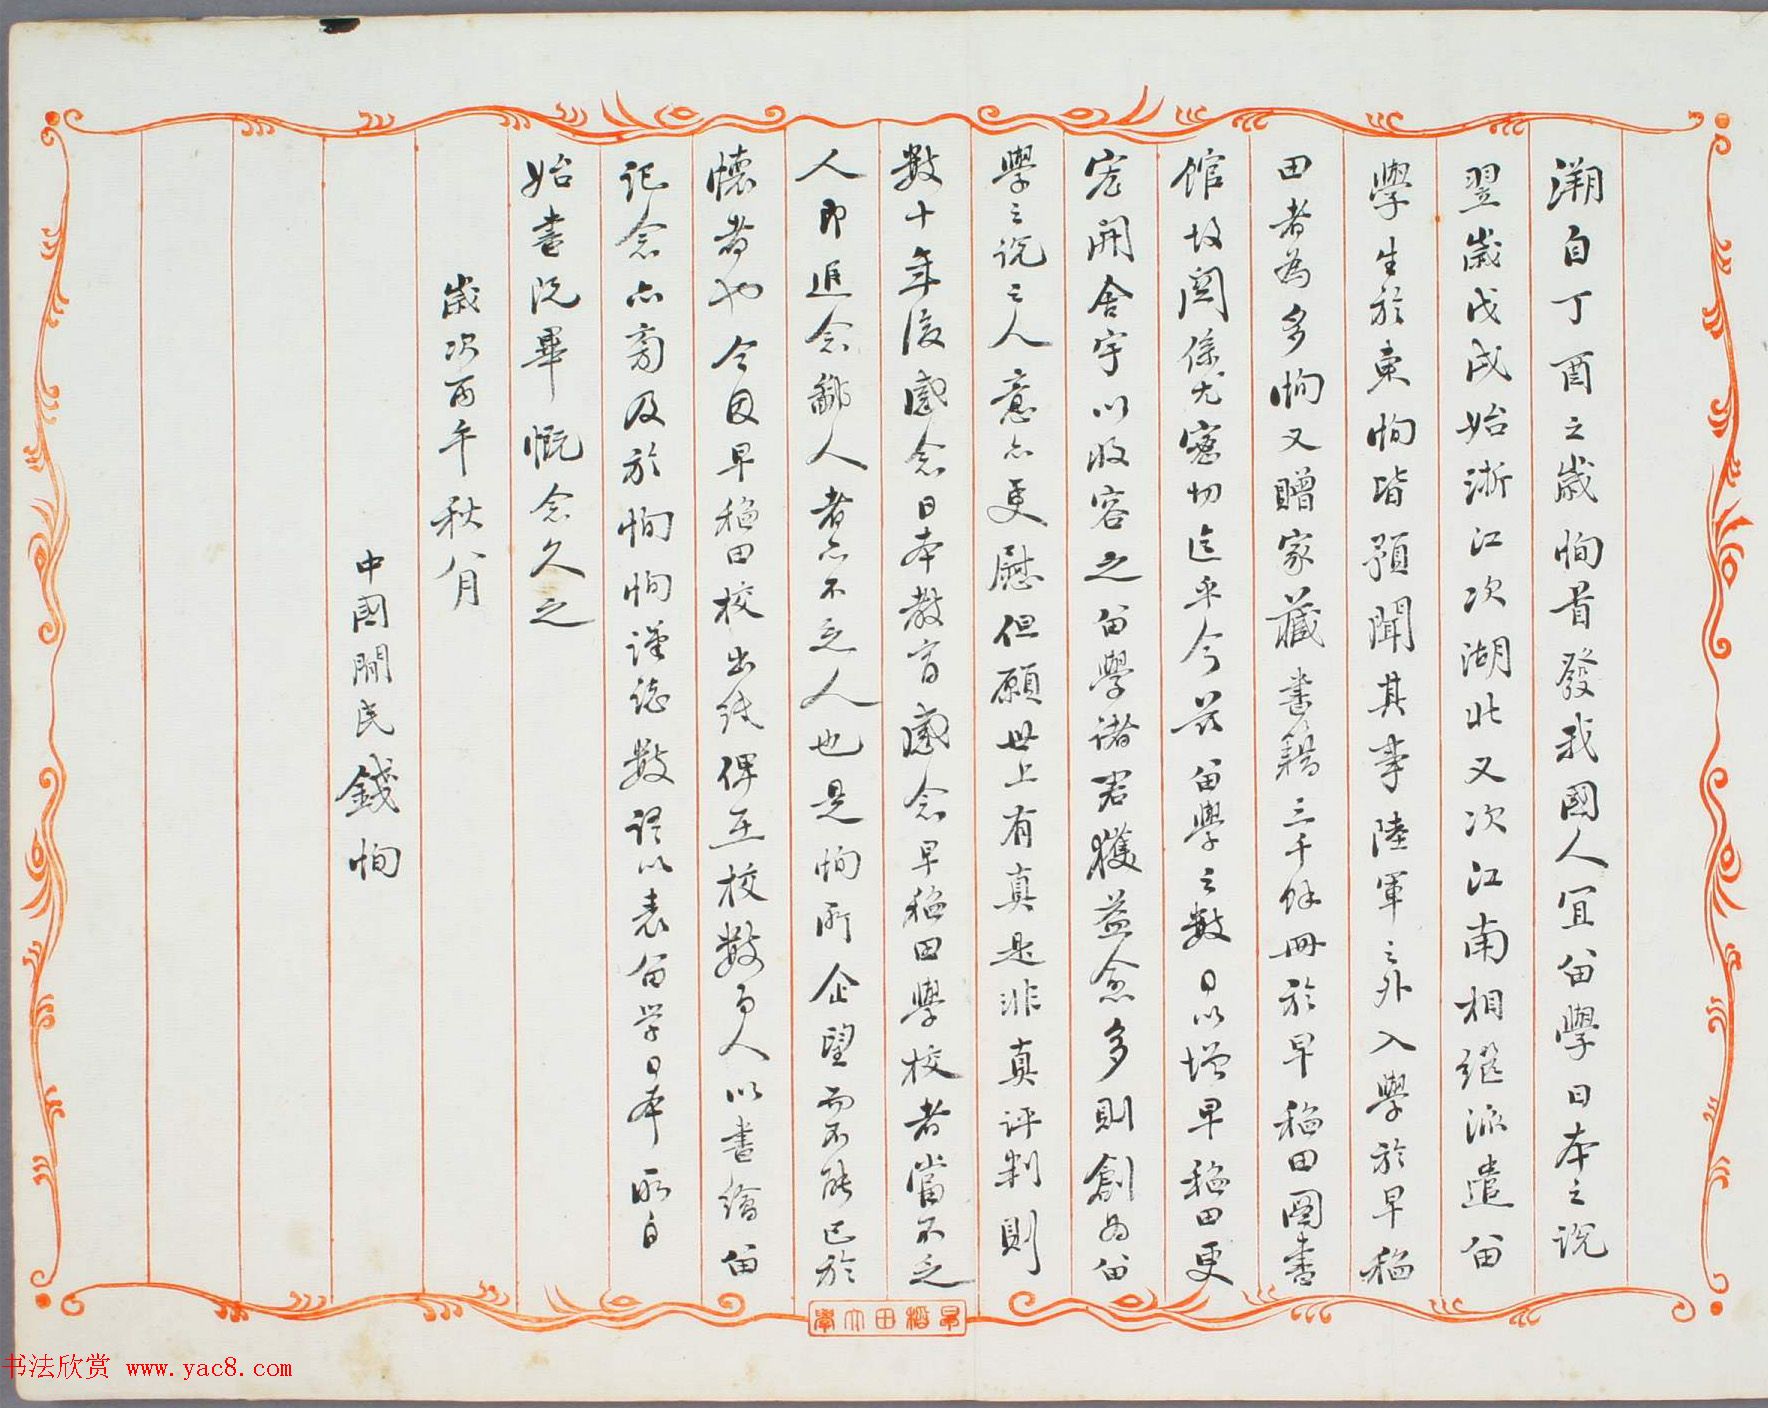 溯自丁酉之歲恂首發我國人宜留學日本之說
翌歲戊戌始浙江次湖北又次江南相繼派遣留
學生於東恂皆預聞其事陸軍之外入學於早稲
田者為多恂又贈家藏書籍三千餘冊於早稲田圖書
館故關係尤密切迄乎今茲留學之數日以增早稲田更
宏開舍宇以收容之留學諸君獲益愈多則創為留
學之說之人意亦更慰但願世上有真是非真評判則
數十年後感念日本教育感念早稲田學校者當不乏
人即追念鄙人者亦不乏人也是恂所企望而不能已於
懷者也今因早稲田校出紙俾在校數百人以書繪留
記念亦徵及於恂恂謹誌數語以表留学日本所自
始書既畢慨念久之
歲次丙午秋八月
中國開民錢恂
早稻田大學
书法欣赏 www.yac8.com